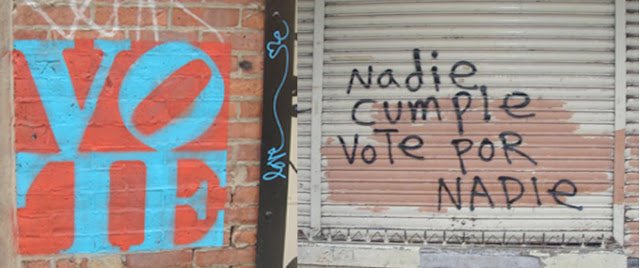 VO
TE
love me
Nadie
cumple
VoTe PoR
NADIe